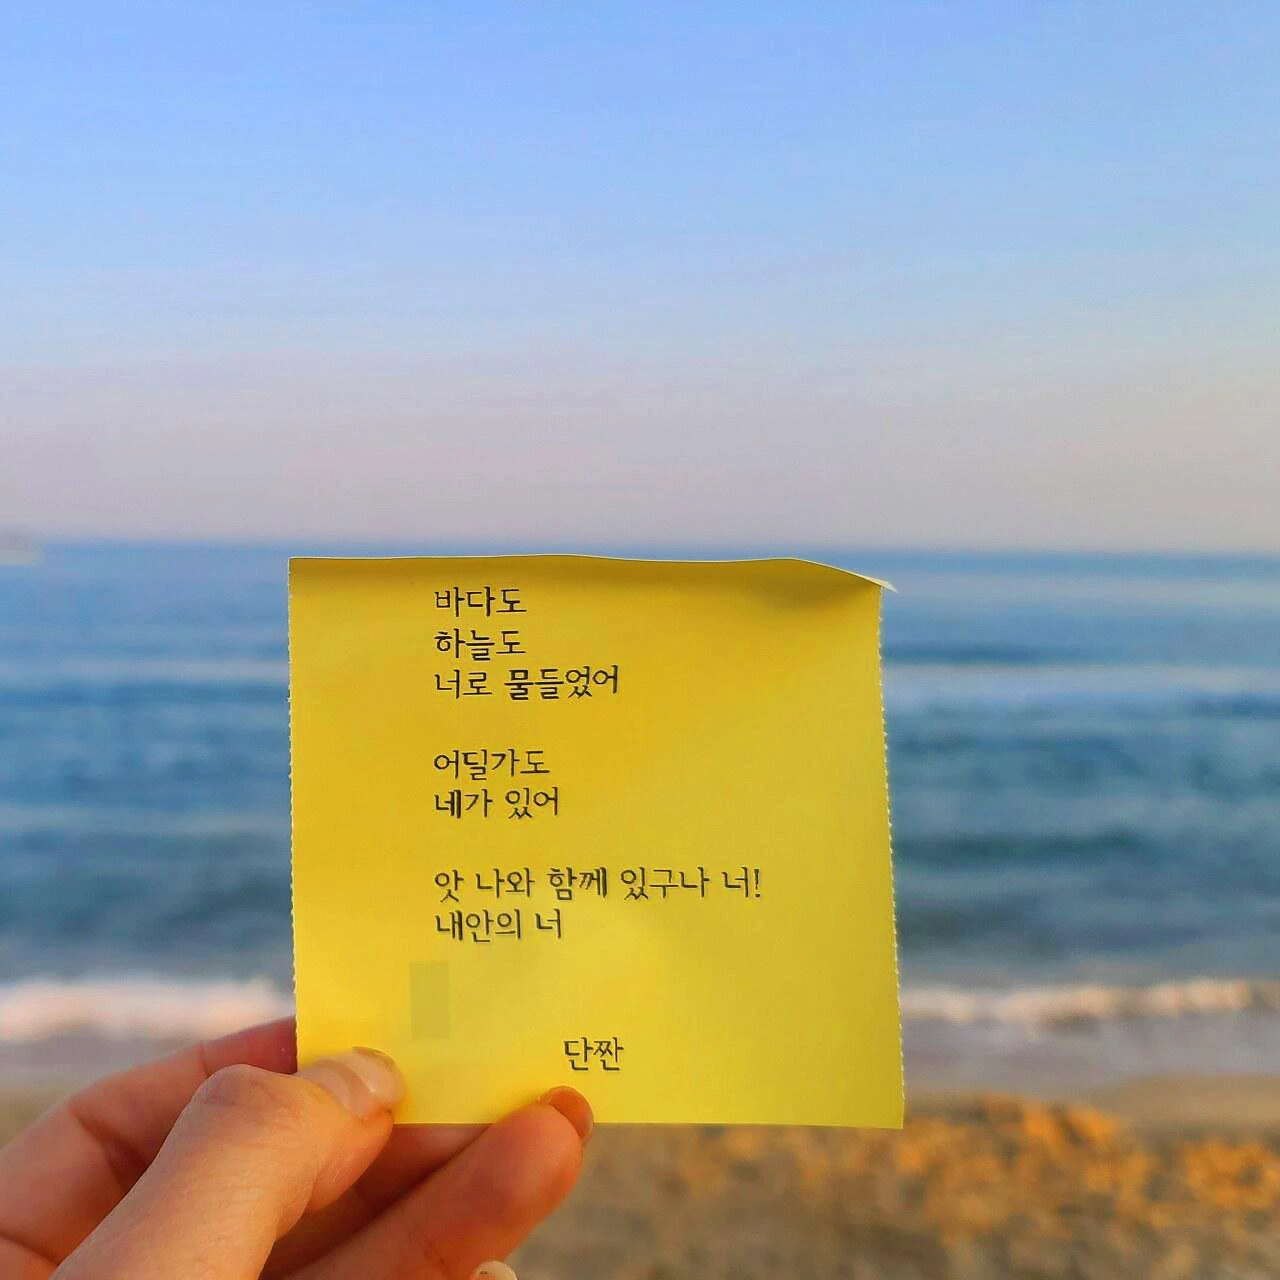 바다도
하늘도
너로 물들었어
어딜가도
네가 있어
앗 나와 함께 있구나 너!
내안의 너
단짠